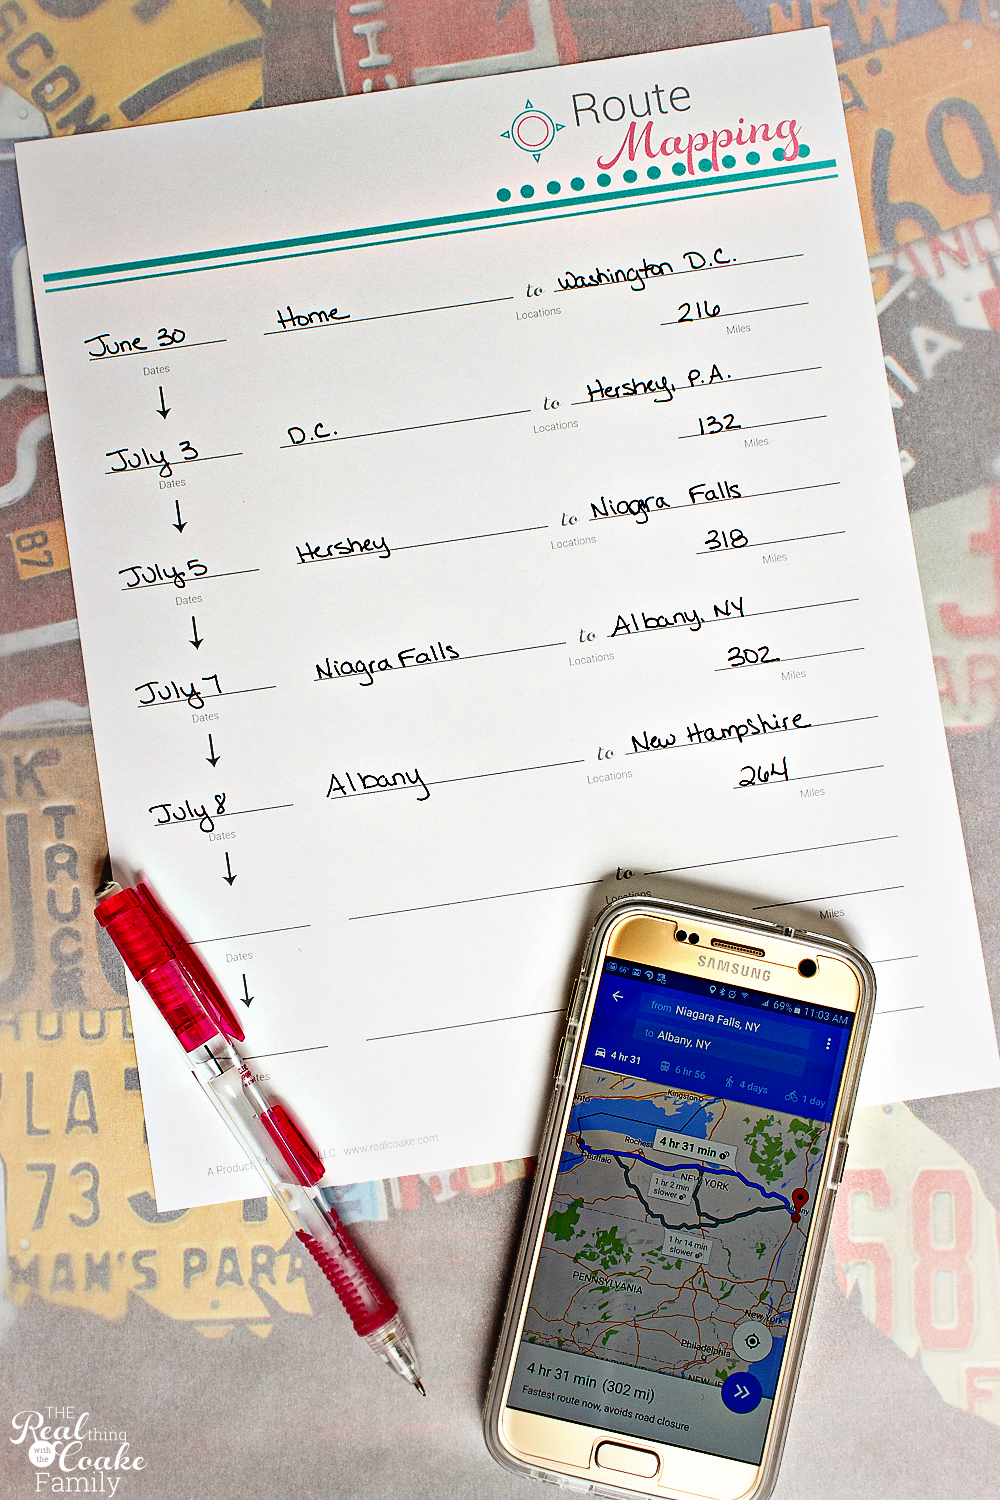 Route
Mapping
June 30 Home to Washington D.C.
Dates Locations
216
Miles
July 3 D.C. to Hershey, P.A.
Dates Locations
132
Miles
July 5 Hershey to Niagra Falls
Dates Locations
318
Miles
July 7 Niagra Falls to Albany, NY
Dates Locations
302
Miles
July 8 Albany to New Hampshire
Dates Locations
264
Miles
to
Locations
Miles
Dates
A Product LLC www.realcoake.com
SAMSUNG
66° 69% 11:03 AM
from Niagara Falls, NY
to Albany, NY
4 hr 31 6 hr 56 4 days 1 day
Kingston
Rochest
4 hr 31 min
Buffalo
NEW YORK
1 hr 2 min
slower
Albany
1 hr 14 min
slower
PENNSYLVANIA
New York
Philadelphia
NEW JE
4 hr 31 min (302 mi)
Fastest route now, avoids road closure
THE
Real thing
with the
Coake
Family
TRUCK
87
73
MAN'S PARA
68